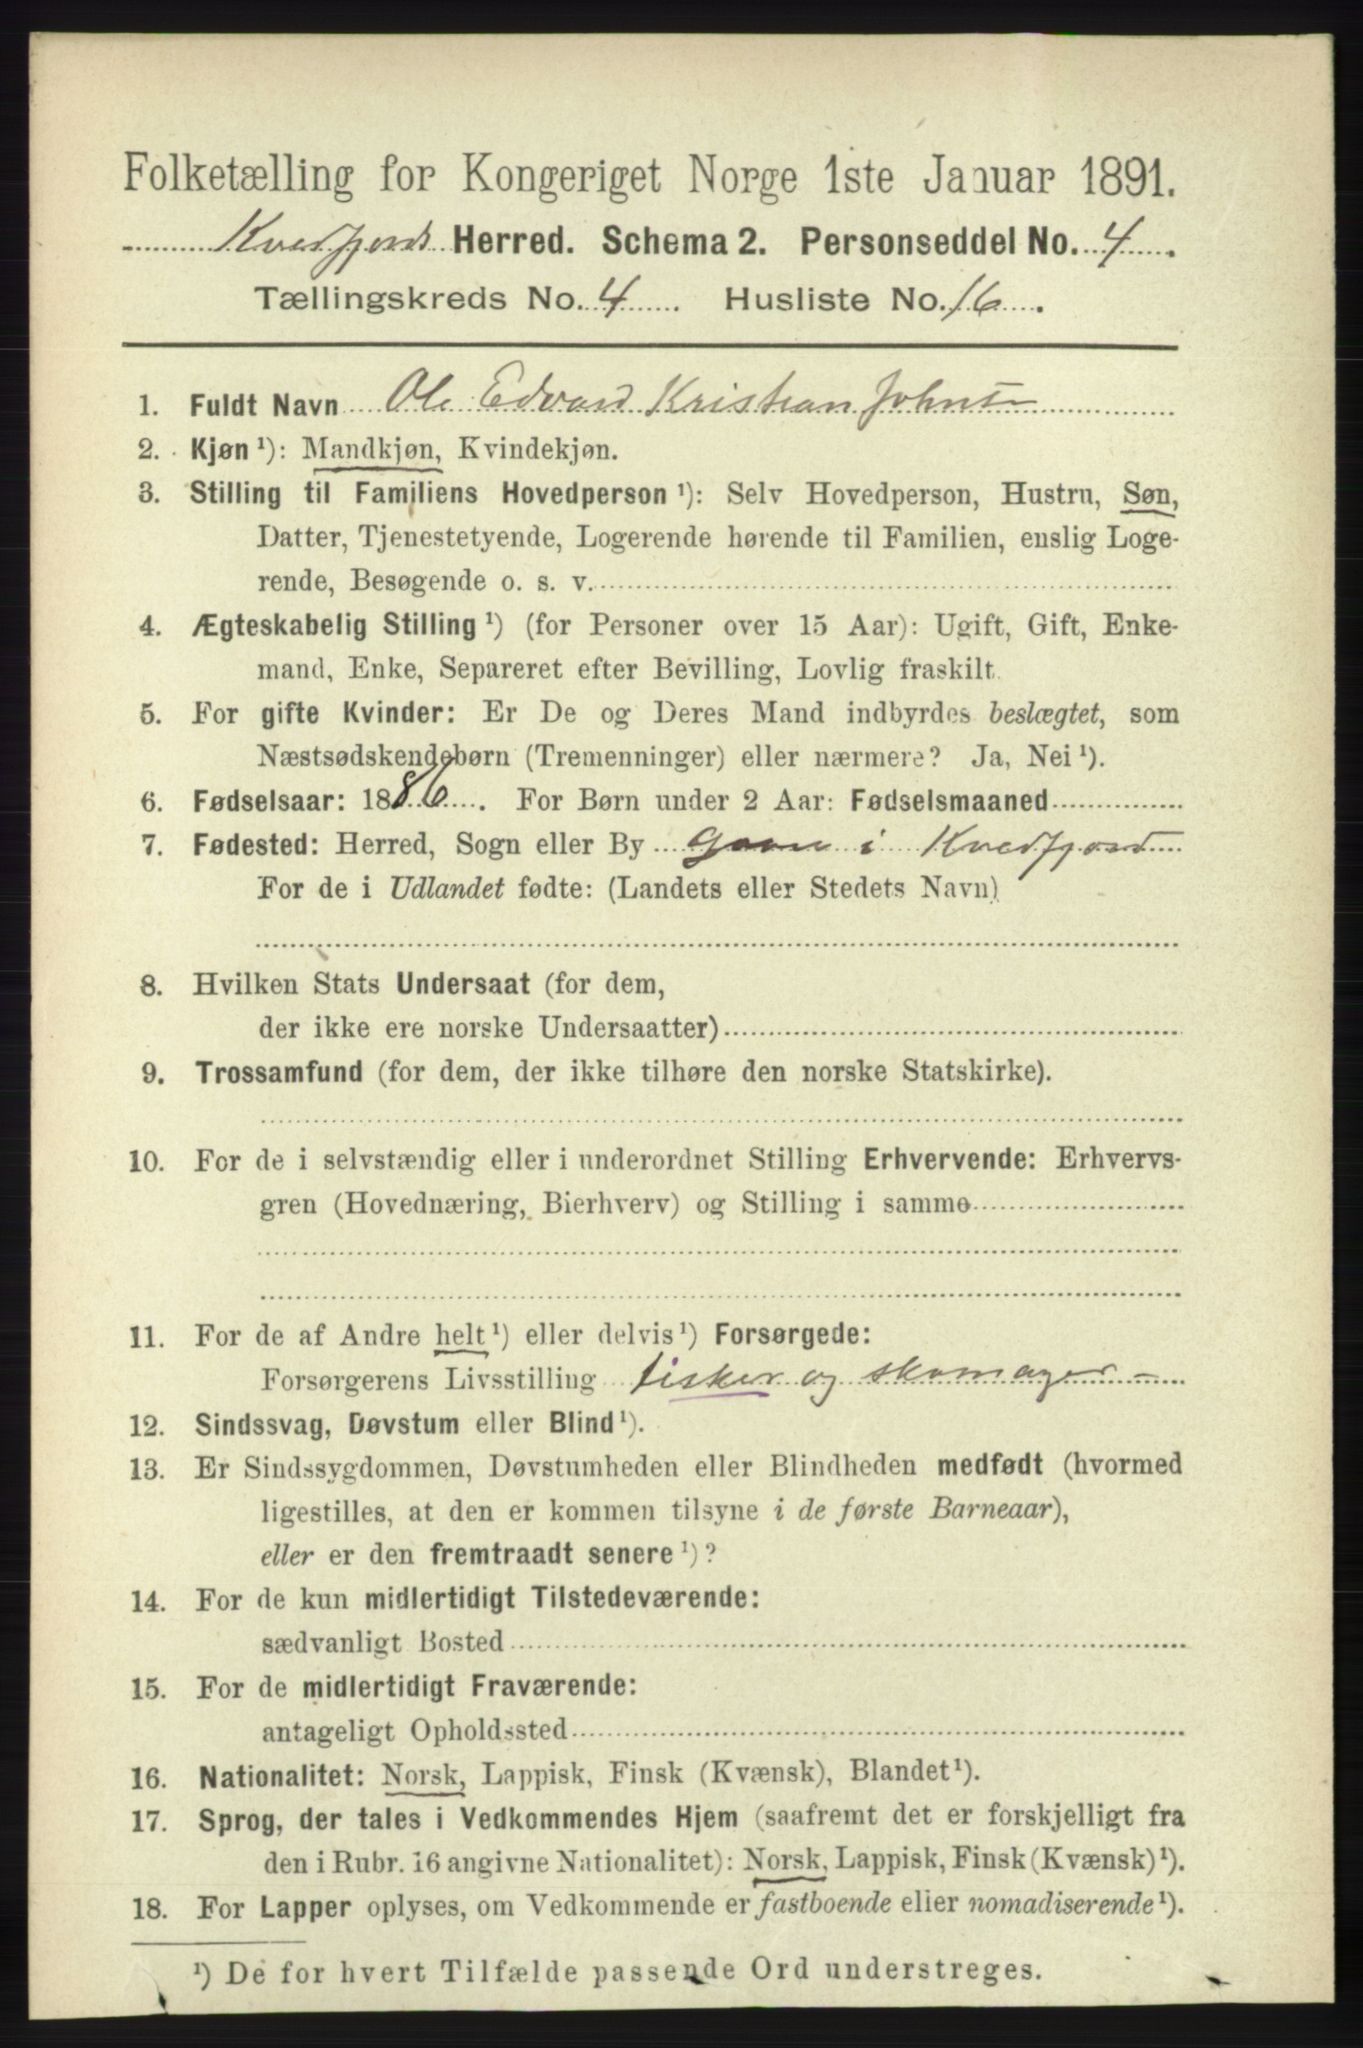 Folketælling for Kongeriget Norge 1ste Januar 1891.
Kvedfjords Herred. Schema 2. Personseddel No. 4
Tællingskreds No. 4 Husliste No. 16.
1. Fuldt Navn Ole Edvard Kristian Johns
2. Kjøn ¹): Mandkjøn, Kvindekjøn.
3. Stilling til Familiens Hovedperson ¹): Selv Hovedperson, Hustru, Søn,
Datter, Tjenestetyende, Logerende hørende til Familien, enslig Loge-
rende, Besøgende o. s. v.
4. Ægteskabelig Stilling ¹) (for Personer over 15 Aar): Ugift, Gift, Enke-
mand, Enke, Separeret efter Bevilling, Lovlig fraskilt.
5. For gifte Kvinder: Er De og Deres Mand indbyrdes beslægtet, som
Næstsødskendebørn (Tremenninger) eller nærmere? Ja, Nei ¹).
6. Fødselsaar: 1886. For Børn under 2 Aar: Fødselsmaaned
7. Fødested: Herred, Sogn eller By i Kvedfjord
For de i Udlandet fødte: (Landets eller Stedets Navn)
8. Hvilken Stats Undersaat (for dem,
der ikke ere norske Undersaatter)
9. Trossamfund (for dem, der ikke tilhøre den norske Statskirke).
10. For de i selvstændig eller i underordnet Stilling Erhvervende: Erhvervs-
gren (Hovednæring, Bierhverv) og Stilling i samme
11. For de af Andre helt ¹) eller delvis ¹) Forsørgede:
Forsørgerens Livsstilling fisker og skomager
12. Sindssvag, Døvstum eller Blind ¹).
13. Er Sindssygdommen, Døvstumheden eller Blindheden medfødt (hvormed
ligestilles, at den er kommen tilsyne i de første Barneaar),
eller er den fremtraadt senere ¹)?
14. For de kun midlertidigt Tilstedeværende:
sædvanligt Bosted
15. For de midlertidigt Fraværende:
antageligt Opholdssted
16. Nationalitet: Norsk, Lappisk, Finsk (Kvænsk), Blandet ¹).
17. Sprog, der tales i Vedkommendes Hjem (saafremt det er forskjelligt fra
den i Rubr. 16 angivne Nationalitet): Norsk, Lappisk, Finsk (Kvænsk) ¹).
18. For Lapper oplyses, om Vedkommende er fastboende eller nomadiserende ¹).
¹) De for hvert Tilfælde passende Ord understreges.